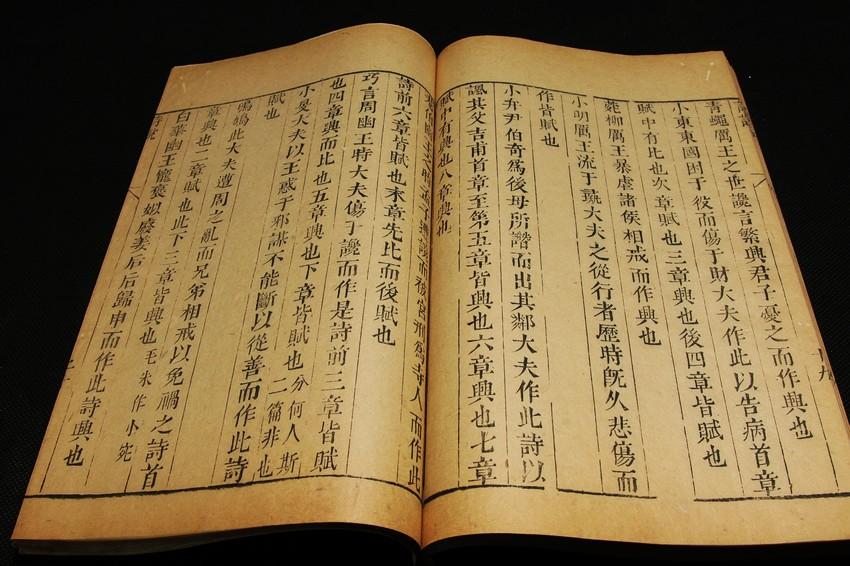 青蠅厲王之世讒言繁興君子憂之而作興也
小東東國困于役而傷于財大夫作此以告病首章
賦中有比也次章賦也三章興也後四章皆賦也
菀柳厲王暴虐諸侯相戒而作興也
小明厲王流于彘大夫之從行者歷時旣久悲傷而
作皆賦也
小弁尹伯奇爲後母所譖而出其鄰大夫作此詩以
諷其父吉甫首章至第五章皆興也六章興也七章
賦中有興也八章興也
幽王之時孟子遭讒而被宮刑爲寺人而作此
詩前六章皆賦也末章先比而後賦也
巧言周幽王時大夫傷于讒而作是詩前三章皆賦
也四章興而比也五章興也下章皆賦也分何人斯
二篇非也
小旻大夫以王惑于邪謀不能斷以從善而作此詩
賦也
鳴鳩此大夫遭周之亂而兄弟相戒以免禍之詩首
章興也二章賦也此下三章皆興也毛朱作小宛
白華幽王寵褒姒廢姜后后歸申而作此詩興也